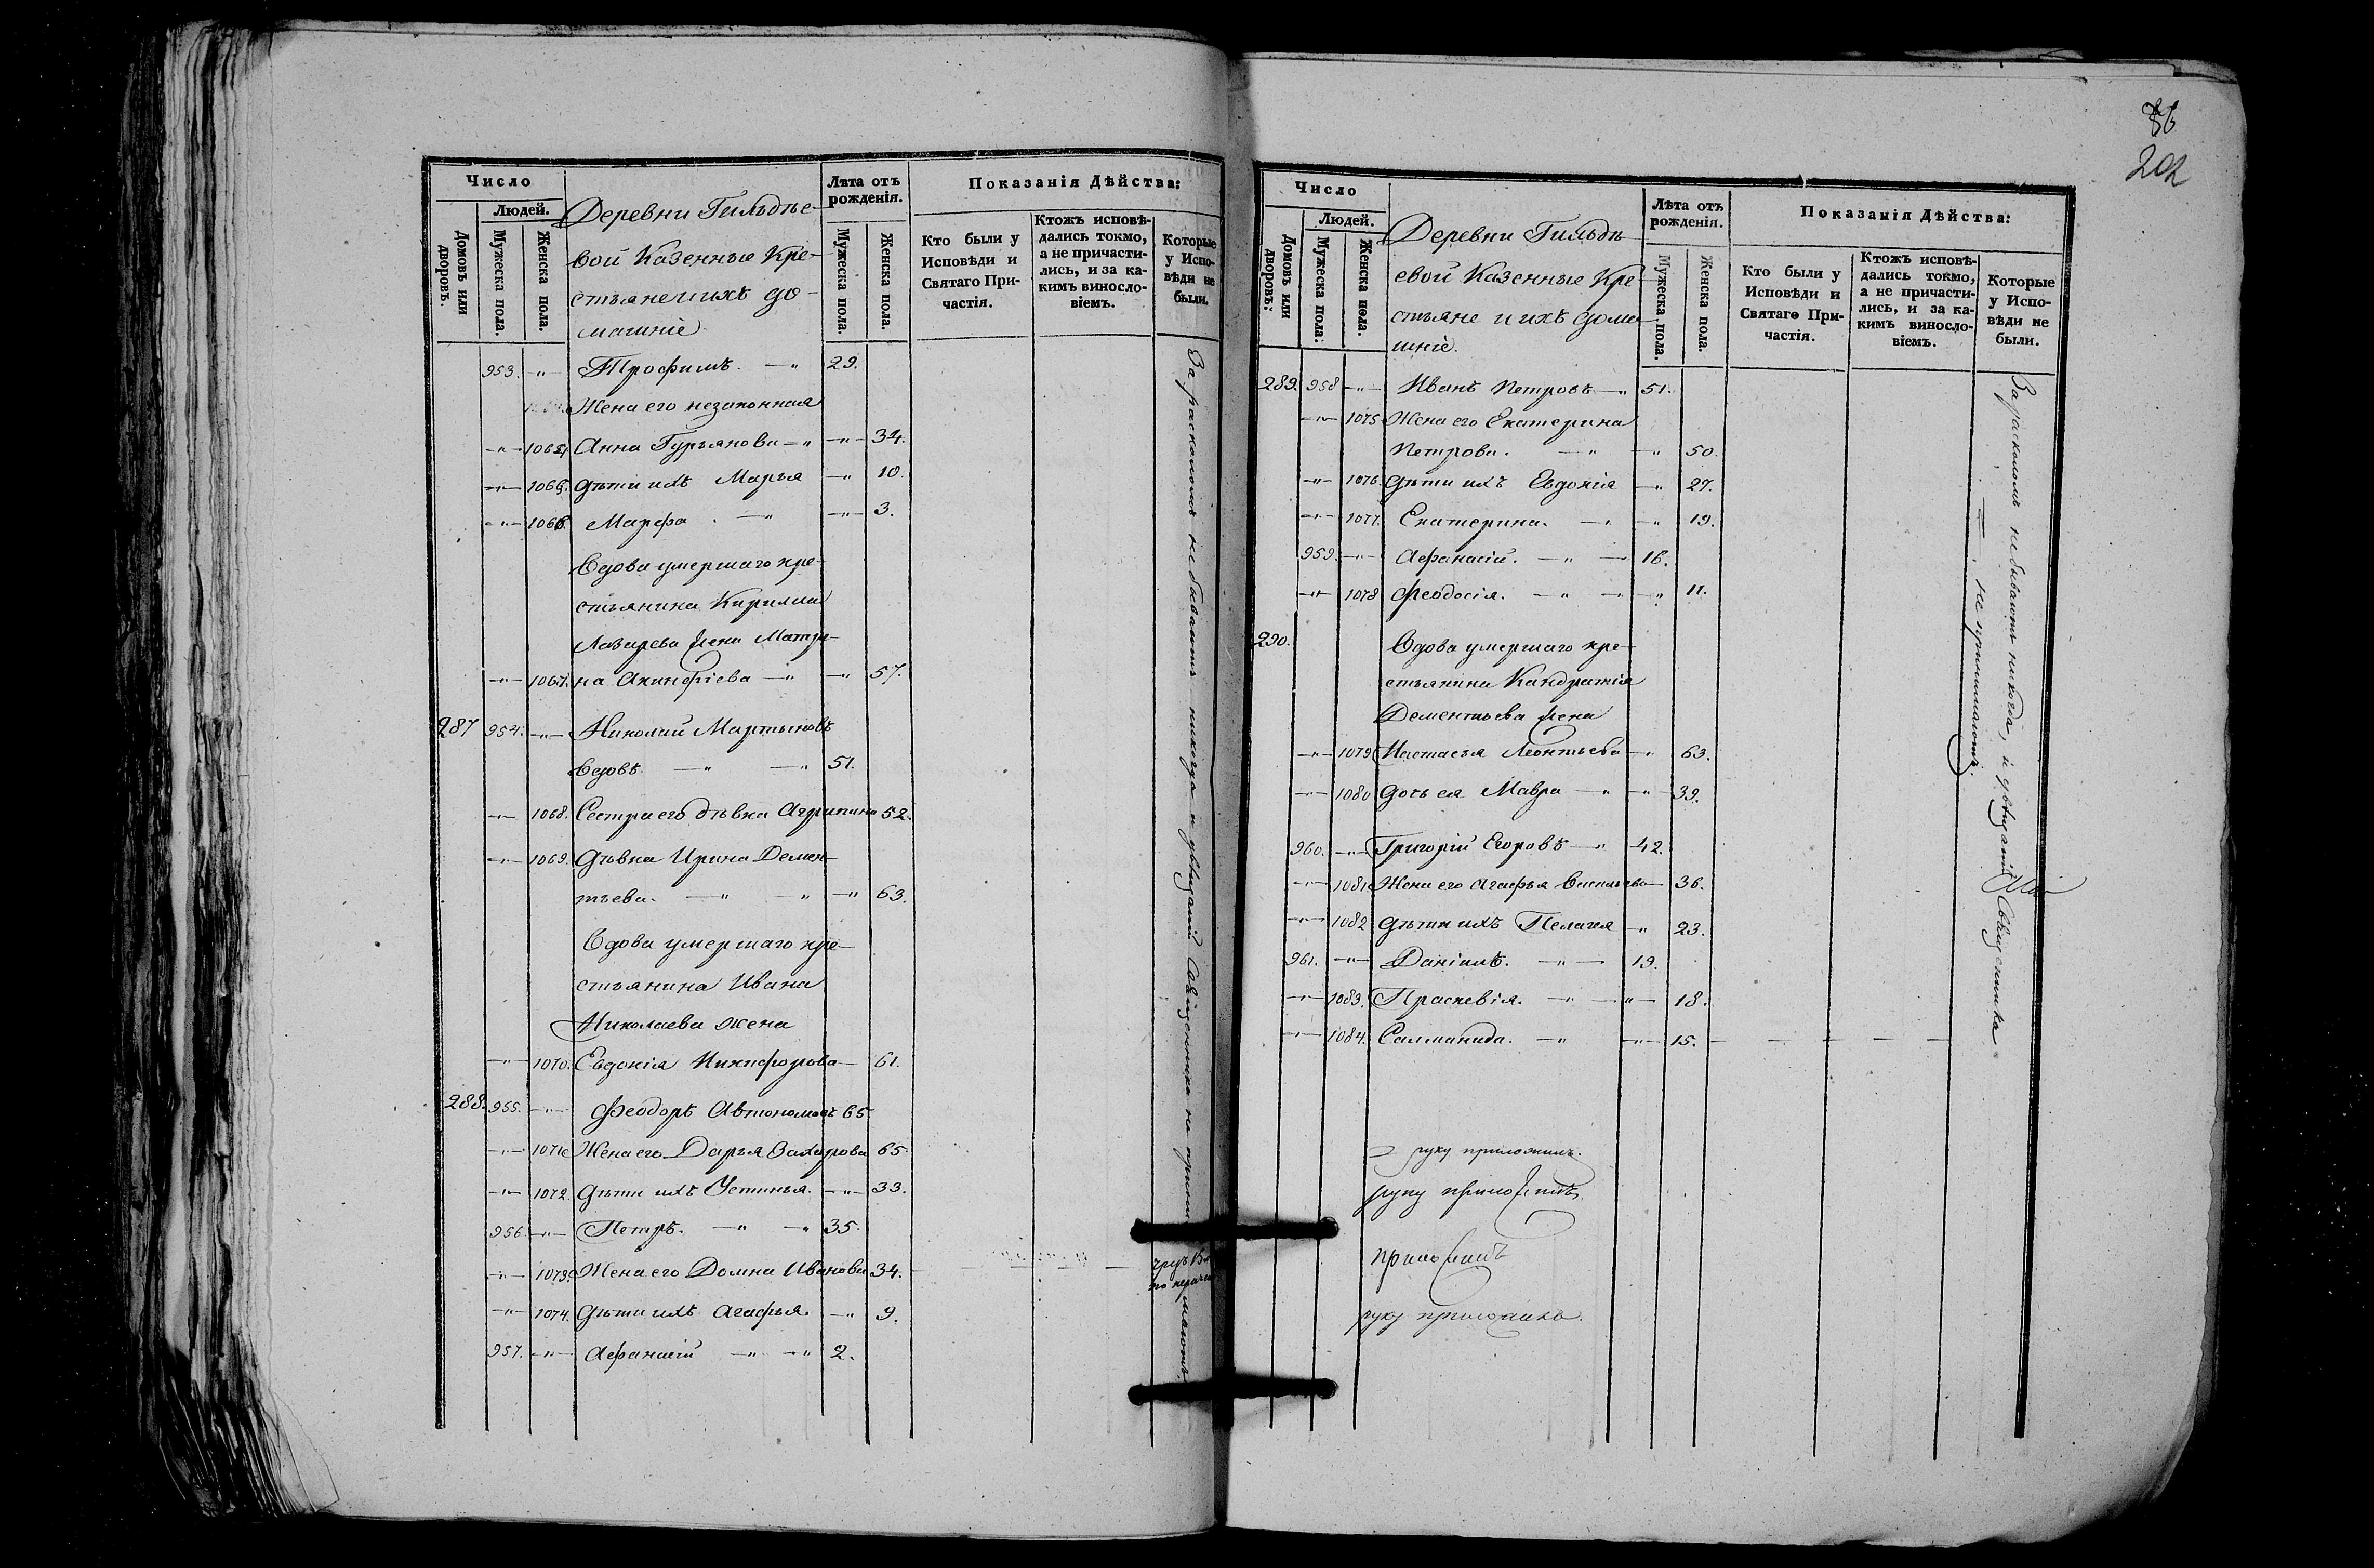 Число
Людей.
Домовъ или дворовъ.
Мужеска пола.
Женска пола.
Деревни Гильдѣе-
вой Казенные Кре-
стьяне и ихъ до-
машніе
Лѣта отъ рожденія.
Мужеска пола.
Женска пола.
Показанія Дѣйства:
Кто были у Исповѣди и Святаго Причастія.
Ктожъ исповѣдались токмо, а не причастились, и за какимъ винословіемъ.
Которые у Исповѣди не были.
953. -"- Трофимъ. -" 29.
Жена его незаконная
-"- 1064. Анна Гурьянова -" -"- 34.
-"- 1065. Дѣти ихъ Марья -" 10.
-"- 1066. Марфа. -" -"- 3.
Вдова умершаго кре-
стьянина Кирилла
Лазарева жена Матре-
-"- 1067. на Акинфіева -" -" 57.
287 954. -"- Николай Мартыновъ
вдовъ. -" -" 51.
-"- 1068. Сестра его дѣвка Агрипина 52.
-"- 1069. Дѣвка Ирина Демен-
тьева. -" " -" 63.
Вдова умершаго кре-
стьянина Ивана
Николаева жена
-"- 1070. Евдокія Никифорова - 61.
288. 955. -"- Феодоръ Автономовъ 65.
-"- 1071. Жена его Дарья Захарова 65.
-"- 1072. Дѣти ихъ Устинья. -"- 33.
956. -"- Петръ. -" -" 35.
-"- 1073. Жена его Домна Иванова 34.
-"- 1074. Дѣти ихъ Агафья. -" 9.
957. -"- Афанасій -" -" 2.
За расколомъ не бываютъ никогда и увѣщаній Священника не принимаютъ.
86
202
Число
Людей.
Домовъ или дворовъ.
Мужеска пола.
Женска пола.
Деревни Гильдѣ-
евой Казенные Кре-
стьяне и ихъ дома-
шніе.
Лѣта отъ рожденія.
Мужеска пола.
Женска пола.
Показанія Дѣйства:
Кто были у Исповѣди и Святаго Причастія.
Ктожъ исповѣдались токмо, а не причастились, и за какимъ винословіемъ.
Которые у Исповѣди не были.
289. 958 -"- Иванъ Петровъ -" 51.
-"- 1075 Жена его Екатерина
Петрова. -" -" 50.
-"- 1076. Дѣти ихъ Евдокія -" 27.
-"- 1077. Екатерина. -" -" 19.
959. -"- Афанасій. -" - 16.
-"- 1078 Феодосія. -" -" 11.
290. Вдова умершаго кре-
стьянина Кандратія
Дементьева жена
-"- 1079 Настасья Леонтьева -" 63.
-"- 1080 Дочь ея Мавра -" -" 39.
960. -"- Григорій Егоровъ -" 42.
-"- 1081 Жена его Агафья Васильева - 36.
-"- 1082 Дѣти ихъ Пелагея -" 23.
961. -"- Даніилъ. -" - 19.
-"- 1083. Прасковія. -" -"- 18.
-"- 1084. Саломанида. -" -"- 15.
За расколомъ не бываютъ никогда, и увѣщаній Священника
не принимаютъ.
руку приложилъ.
руку приложилъ.
приложилъ
руку приложилъ.